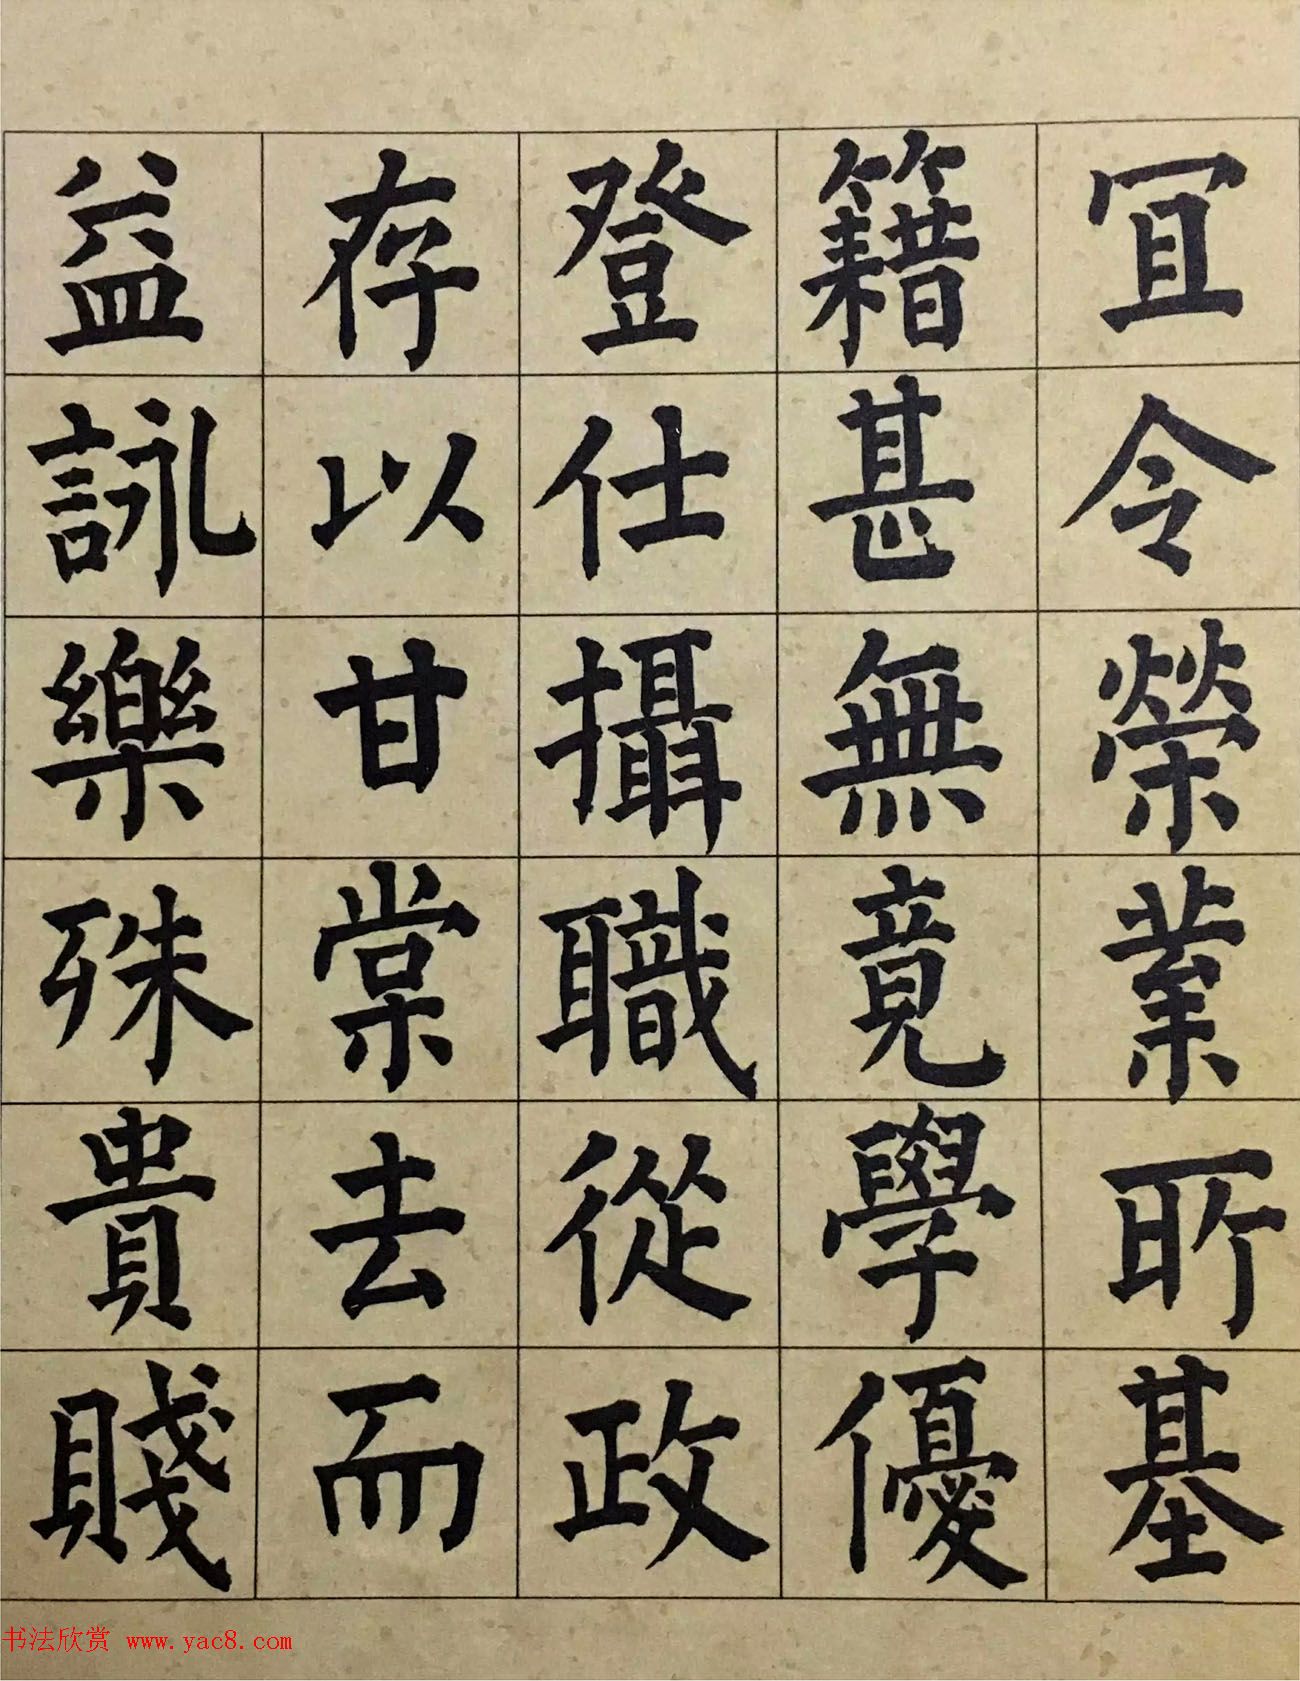 冝令榮業所基
籍甚無竟學優
登仕攝職從政
存以甘棠去而
益詠樂殊貴賤
书法欣赏 www.yac8.com